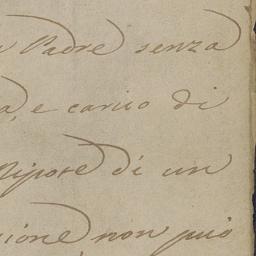 Padre senza
a, e carico di
Nipote di un
zione non può